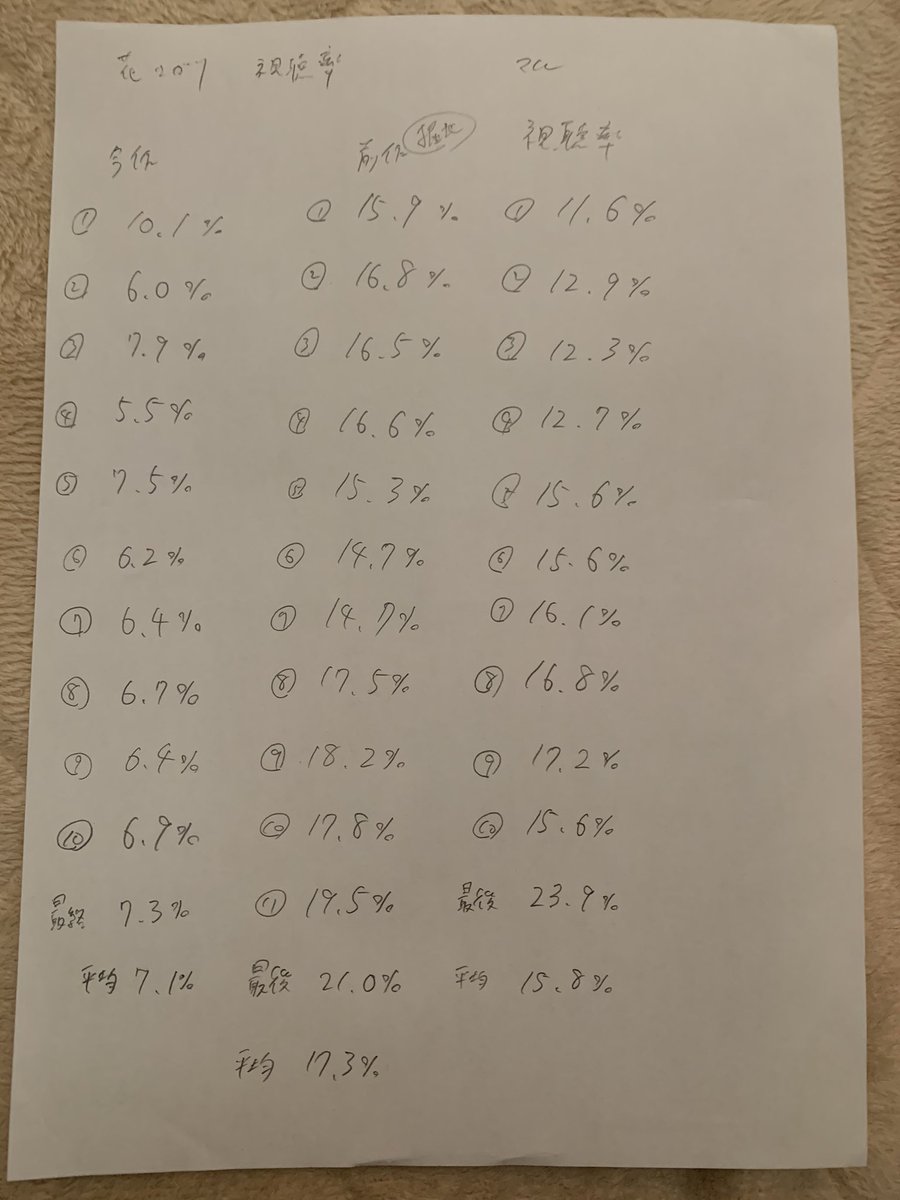 視聴率
今作 前作 視聴率
① 10.1% ① 15.9% ① 11.6%
② 6.0% ② 16.8% ② 12.9%
③ 7.9% ③ 16.5% ③ 12.3%
④ 5.5% ④ 16.6% ④ 12.7%
⑤ 7.5% ⑤ 15.3% ⑤ 15.6%
⑥ 6.2% ⑥ 14.7% ⑥ 15.6%
⑦ 6.4% ⑦ 14.7% ⑦ 16.1%
⑧ 6.7% ⑧ 17.5% ⑧ 16.8%
⑨ 6.4% ⑨ 18.2% ⑨ 17.2%
⑩ 6.9% ⑩ 17.8% ⑩ 15.6%
最終 7.3% ⑪ 19.5% 最後 23.9%
平均 7.1% 最後 21.0% 平均 15.8%
平均 17.3%